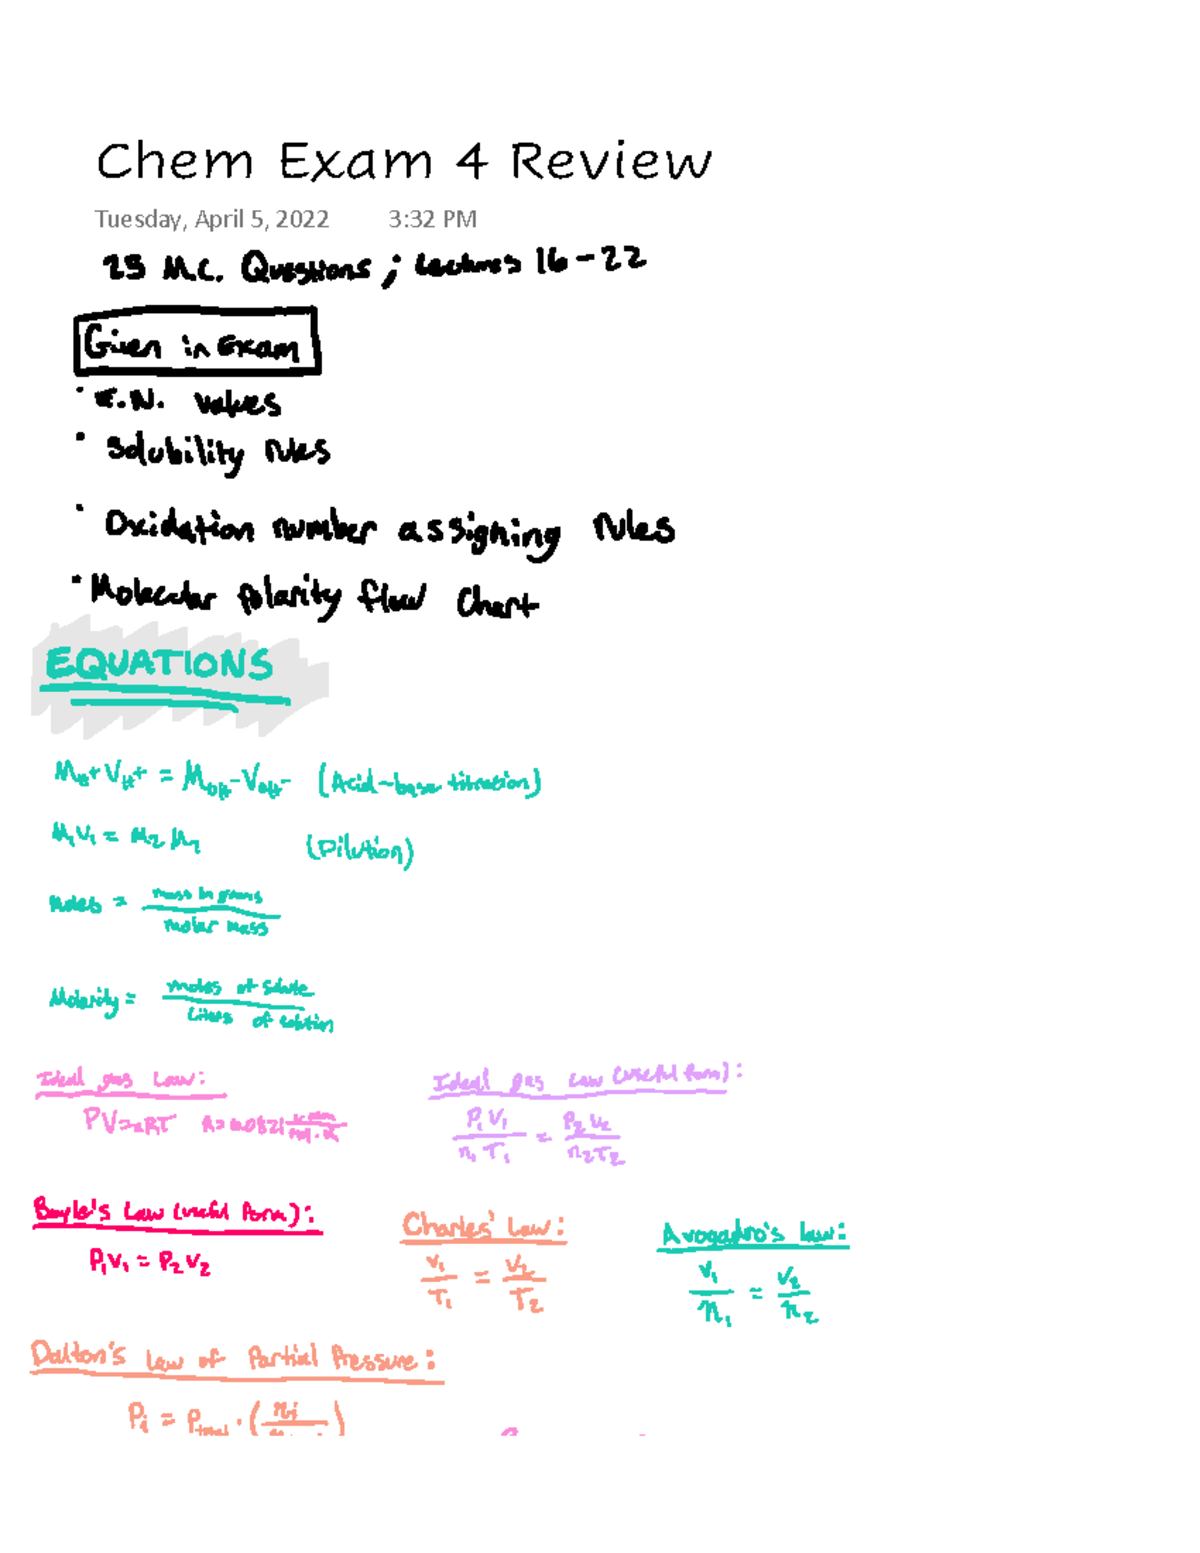 Chem Exam 4 Review
Tuesday, April 5, 2022 3:32 PM
25 M.C. Questions ; Lectures 16-22
Given in Exam
· E.N. values
· Solubility rules
· Oxidation number assigning rules
· Molecular polarity flow chart
EQUATIONS
M_H+ V_H+ = M_OH- V_OH- (Acid-base titration)
M₁V₁ = M₂ M₂ (Dilution)
moles = mass in grams / molar mass
Molarity = moles of solute / Liters of solution
Ideal gas Law: Ideal gas Law (useful form):
PV=nRT R=0.0821 L·atm / mol·K P₁V₁ / n₁T₁ = P₂V₂ / n₂T₂
Boyle's Law (useful form): Charles' Law: Avogadro's law:
P₁V₁ = P₂V₂ V₁ / T₁ = V₂ / T₂ V₁ / n₁ = V₂ / n₂
Dalton's Law of Partial Pressure:
Pᵢ = P_total · ( nᵢ / )